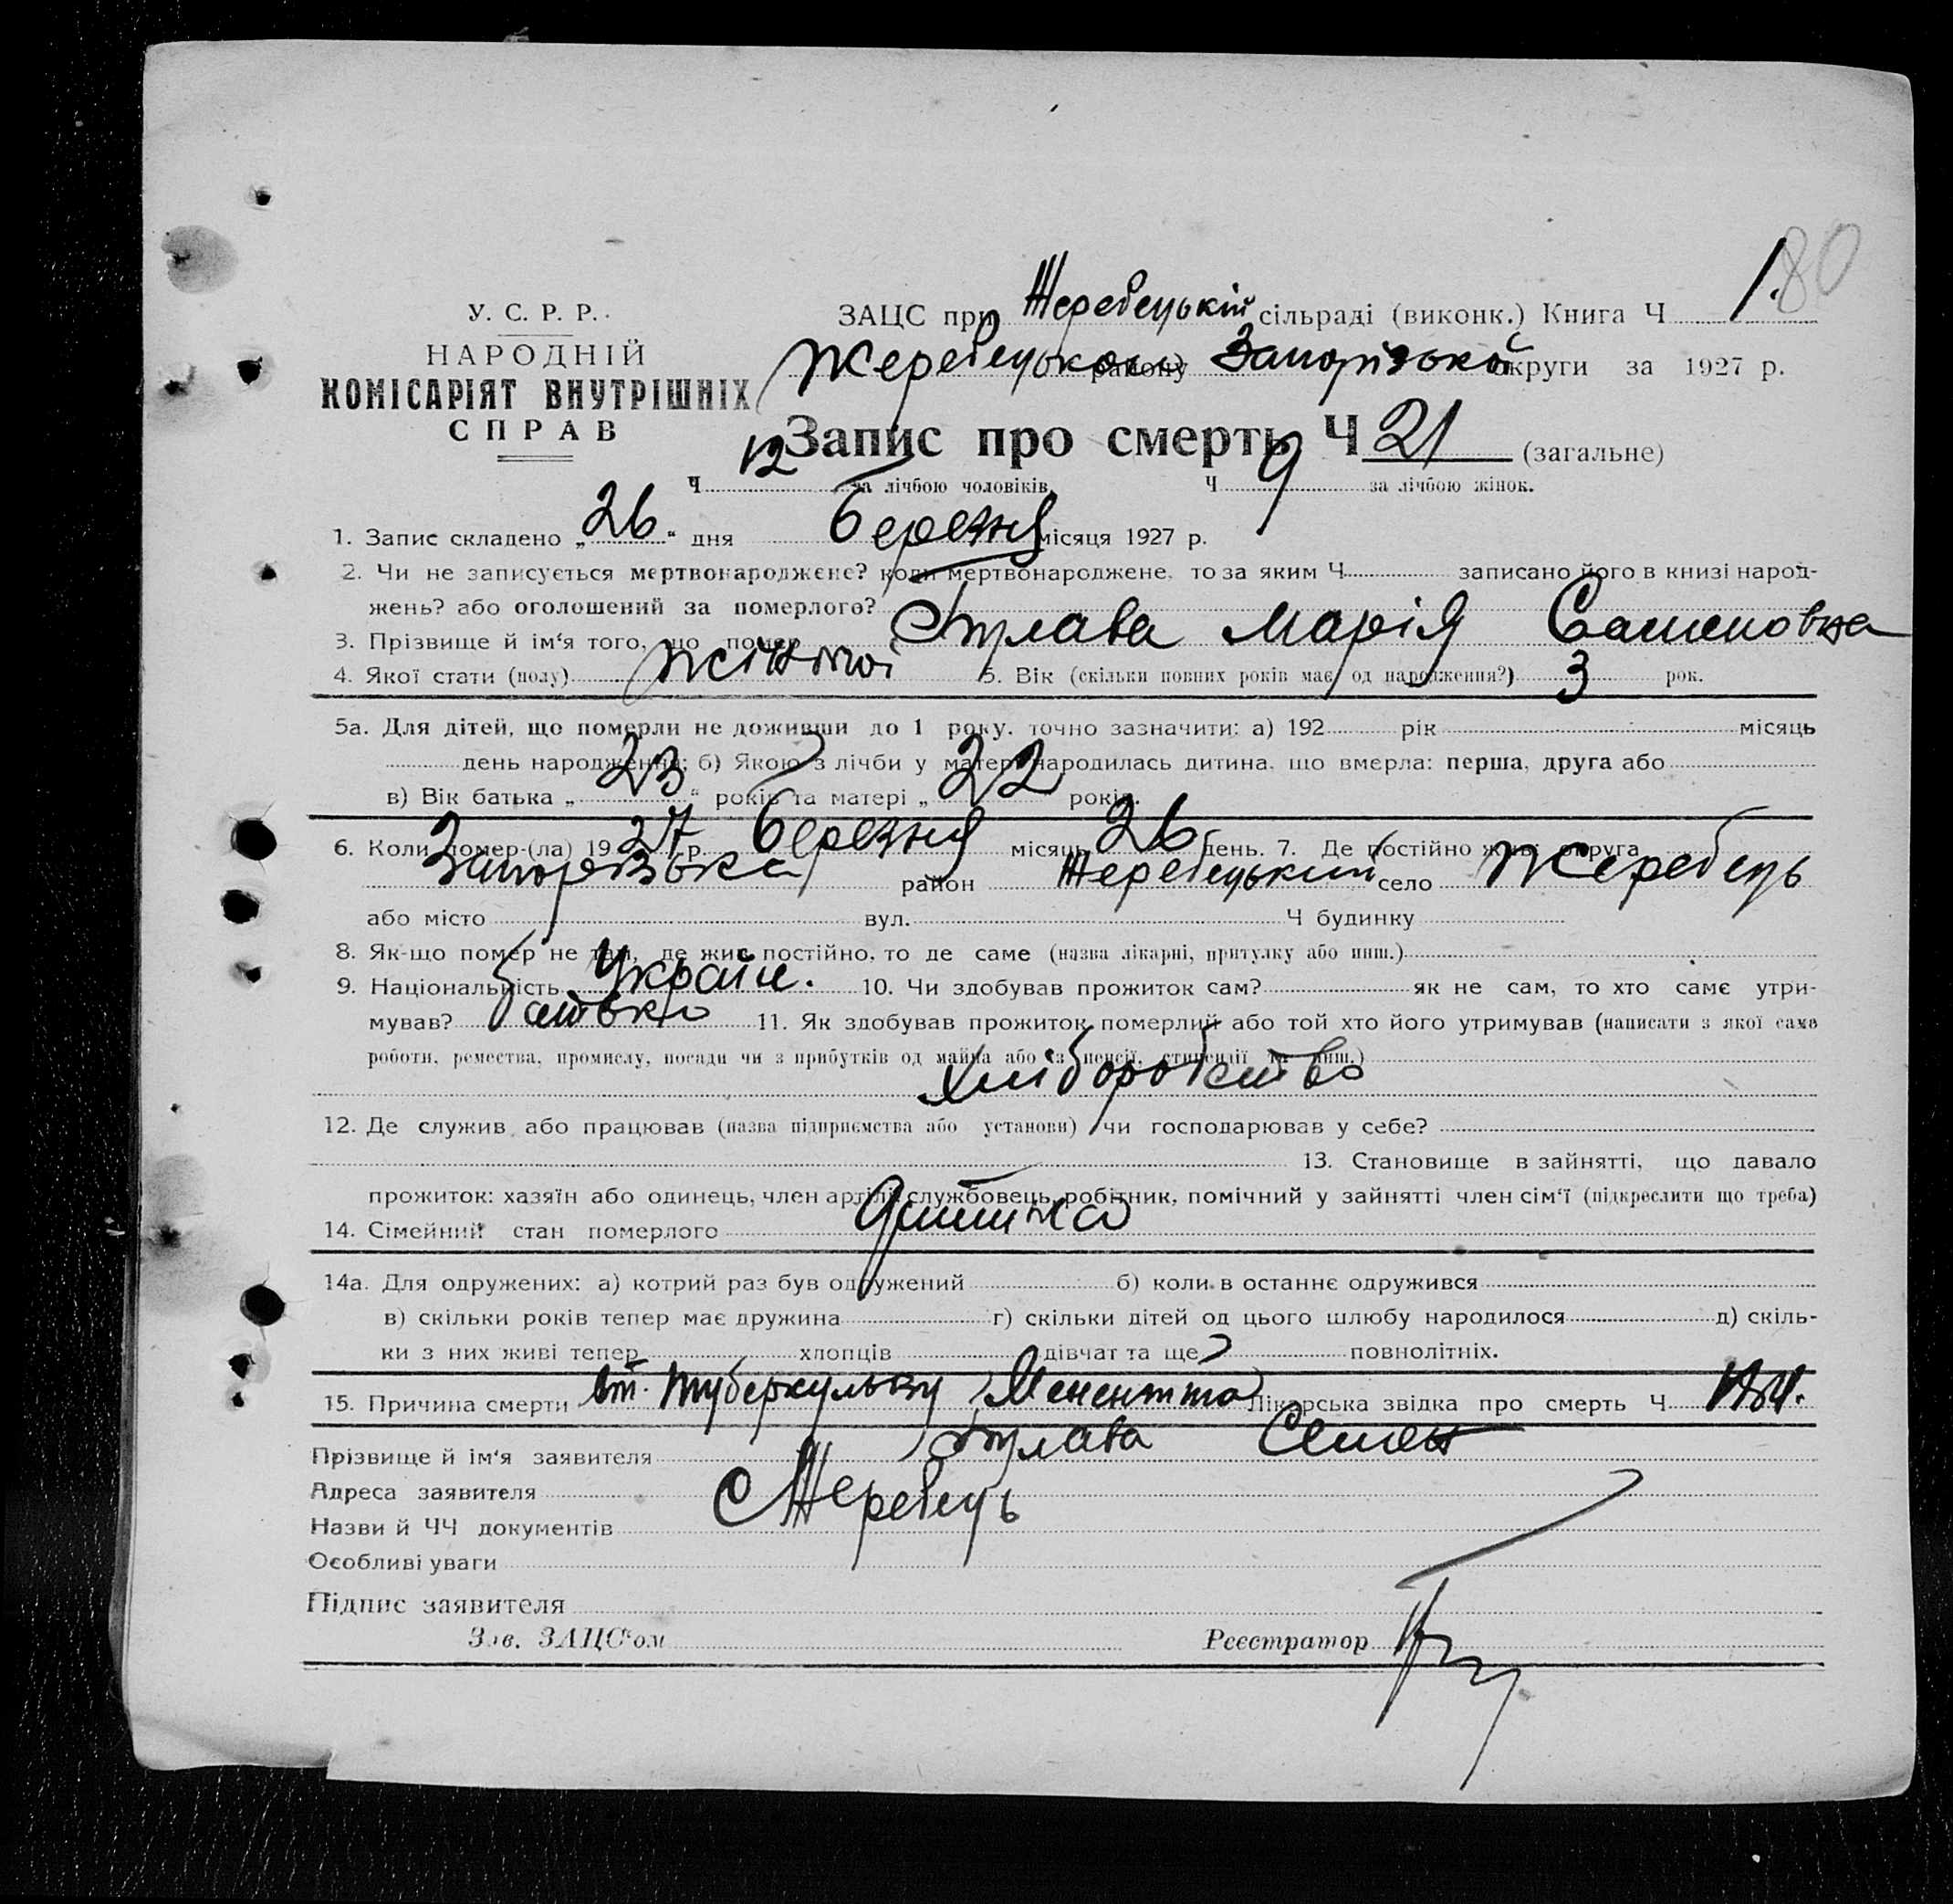 180
У. С. Р. Р.
НАРОДНІЙ
КОМІСАРІЯТ ВНУТРІШНІХ
СПРАВ
ЗАЦС при Жеребецькій сільраді (виконк.) Книга Ч 1.
Жеребецького району Запорізької округи за 1927 р.
Запис про смерть Ч 21 (загальне)
Ч 12 за лічбою чоловіків. Ч 9 за лічбою жінок.
1. Запис складено „26“ дня Березня місяця 1927 р.
2. Чи не записується мертвонароджене? коли мертвонароджене, то за яким Ч записано його в книзі народ-
жень? або оголошений за померлого?
3. Прізвище й ім‘я того, що помер Булава Марія
4. Якої стати (полу) жіночої 5. Вік (скільки повних років має од народження?) 3 рок.
5а. Для дітей, що померли не доживши до 1 року. точно зазначити: а) 192 рік місяць
день народження; б) Якою з лічби у матері народилась дитина, що вмерла: перша, друга або
в) Вік батька „23“ років та матері „22 років.
6. Коли помер-(ла) 1927 р. Березня місяць 26 день. 7. Де постійно жив: округа
Запорізька район Жеребецький село Жеребець
або місто вул. Ч будинку
8. Як-що помер не там, де жив постійно, то де саме (назва лікарні, притулку або инш.)
9. Національність Україн. 10. Чи здобував прожиток сам? як не сам, то хто саме утри-
мував? батько 11. Як здобував прожиток померлий або той хто його утримував (написати з якої саме
роботи, ремества, промислу, посади чи з прибутків од майна або із пенсії, стипендії та инш.)
хліборобство
12. Де служив або працював (назва підприємства або установи) чи господарював у себе?
13. Становище в зайнятті, що давало
прожиток: хазяїн або одинець, член артілі, службовець, робітник, помічний у зайнятті член сім‘ї (підкреслити що треба)
14. Сімейний стан померлого дитина
14а. Для одружених: а) котрий раз був одружений б) коли в останнє одружився
в) скільки років тепер має дружина г) скільки дітей од цього шлюбу народилося д) скіль-
ки з них живі тепер хлопців дівчат та ще повнолітніх.
15. Причина смерти від туберкульозу Лікарська звідка про смерть Ч
Прізвище й ім‘я заявителя Булава Семен
Адреса заявителя С Жеребець
Назви й ЧЧ документів
Особливі уваги
Підпис заявителя
Зав. ЗАЦС‘ом Реєстратор